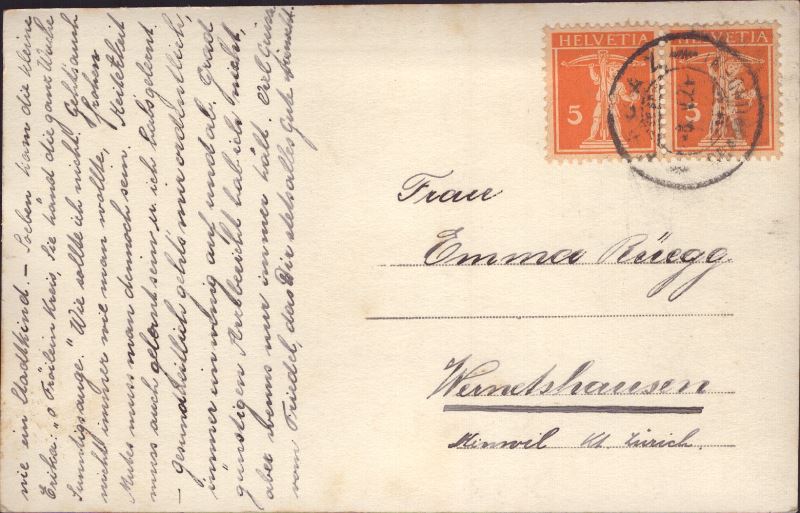 nie ein Stadtkind. – Soeben kam die kleine
Erika: „O Fröilein Kreis, Sie händ die ganz Wuche
Sunntigsauge." Wie sollte ich nicht. Gehts auch
nicht immer wie man wollte,
frohen
Mutes muss man dennoch sein.
muss auch gelernt sein u. ich habs gelernt.
– Gesundheitlich gehts mir ordentlich,
immer ein wenig auf und ab. Grad
günstigen Arztbericht hab ich nicht,
aber wenns nur immer häb.
vom Friedel, das Dir stets alles Gute
HELVETIA
5
HELVETIA
5
Frau
Emma Rüegg
Wernetshausen
Hinwil Kt. Zürich.